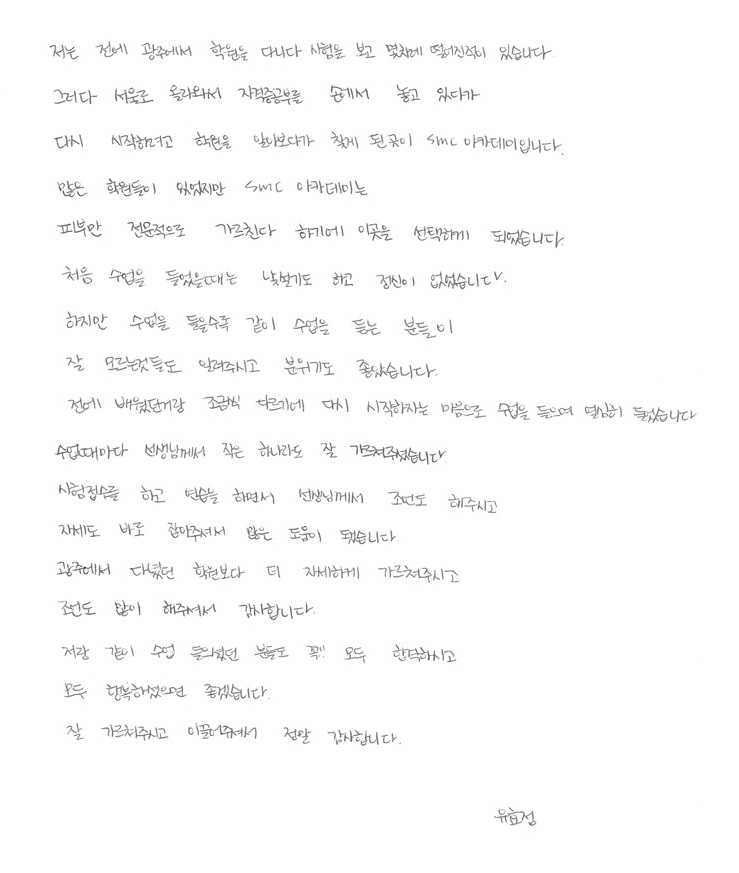 저는 전에 광주에서 학원을 다니다 시험을 보고 몇차례 떨어진적이 있습니다.
그러다 서울로 올라와서 자격증공부를 손에서 놓고 있다가
다시 시작하려고 학원을 알아보다가 찾게 된곳이 SMC 아카데미입니다.
많은 학원들이 있었지만 SMC 아카데미는
피부만 전문적으로 가르친다 하기에 이곳을 선택하게 되었습니다.
처음 수업을 들었을때는 낯설기도 하고 정신이 없었습니다.
하지만 수업을 들을수록 같이 수업을 듣는 분들이
잘 모르는것들도 알려주시고 분위기도 좋았습니다.
전에 배웠던거랑 조금씩 다르기에 다시 시작하자는 마음으로 수업을 들으며 열심히 들었습니다
수업때마다 선생님께서 작은 하나라도 잘 가르쳐주셨습니다.
시험접수를 하고 연습을 하면서 선생님께서 조언도 해주시고
자세도 바로 잡아주셔서 많은 도움이 됐습니다.
광주에서 다녔던 학원보다 더 자세하게 가르쳐주시고
조언도 많이 해주셔서 감사합니다.
저랑 같이 수업 들으셨던 분들도 꼭!! 모두 합격하시고
모두 행복해졌으면 좋겠습니다.
잘 가르쳐주시고 이끌어주셔서 정말 감사합니다.
유효정